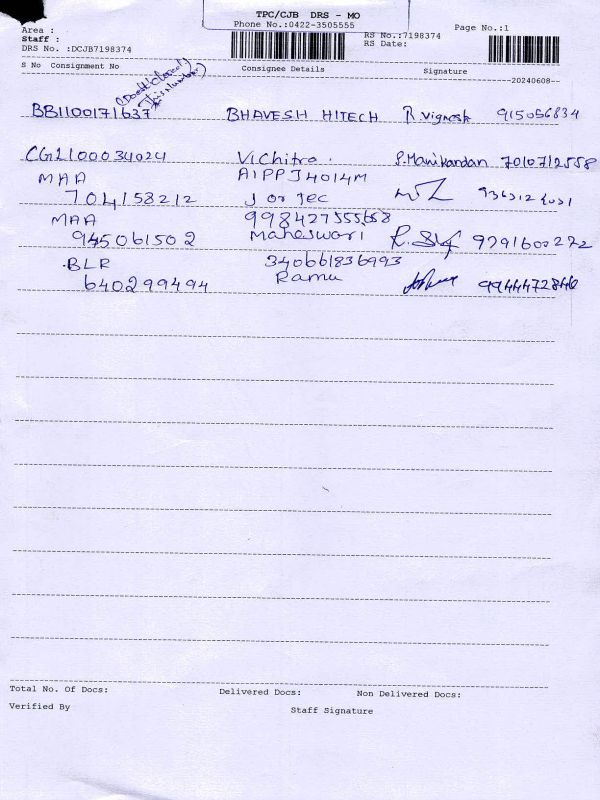 TPC/CJB DRS - MO
Phone No.:0422-3505555
Area :
Staff :
DRS No. :DCJB7198374
RS No.:7198374
RS Date:
Page No.:1
S No Consignment No Consignee Details Signature
20240608
(Don't closed)
This Number)
BB1100171637 BHAVESH HITECH R. Vignesh 915056834
CG1100034024 Vichitra. S. Manikandan 7010712558
MAA AIPPJ4014M
704158212 Jorjec
MAA 998427555658
945061502 Maheswari 9791600272
BLR 340661836993
640299494 Ramu 9944472846
Total No. Of Docs: Delivered Docs: Non Delivered Docs:
Verified By Staff Signature